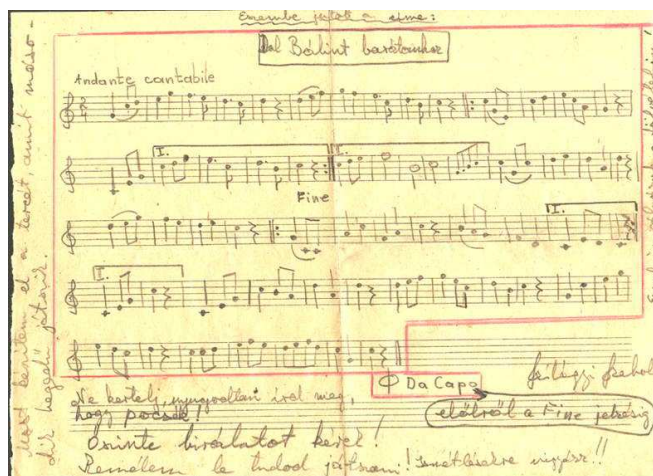 Eszembe jutott a címe:
Dal Bálint barátomhoz
Andante cantabile
I.
I.
Fine
I.
I.
Da Capo
előlről a Fine jelzésig
Ne kertelj, nyugodtan írd meg,
hogy pocsék!
Őszinte bírálatot kérek!
Remélem le tudod játszani! Ismétlésekre vigyázz!!
most készítem el a tercét, amit máso-
dik hegedű játszik.